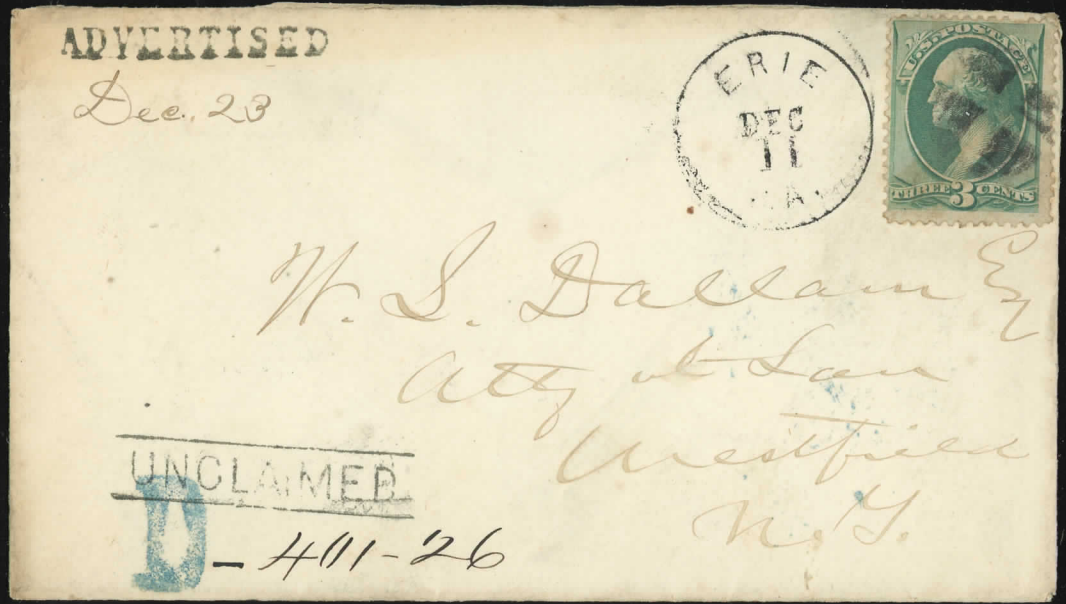 ADVERTISED
Dec. 23
ERIE
DEC
11
PA.
U.S. POSTAGE
THREE 3 CENTS
W. S. Dallam Esq
Atty at Law
Westfield
N.Y.
UNCLAIMED
D - 4011-26